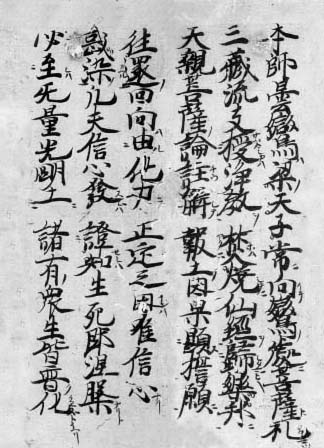 本師曇鸞梁天子 常向鸞處菩薩礼
三藏流支授淨教 焚燒仙經歸樂邦
天親菩薩論註解 報土因果顯誓願
往還回向由他力 正定之因唯信心
惑染凡夫信心發 證知生死即涅槃
必至无量光明土 諸有衆生皆普化